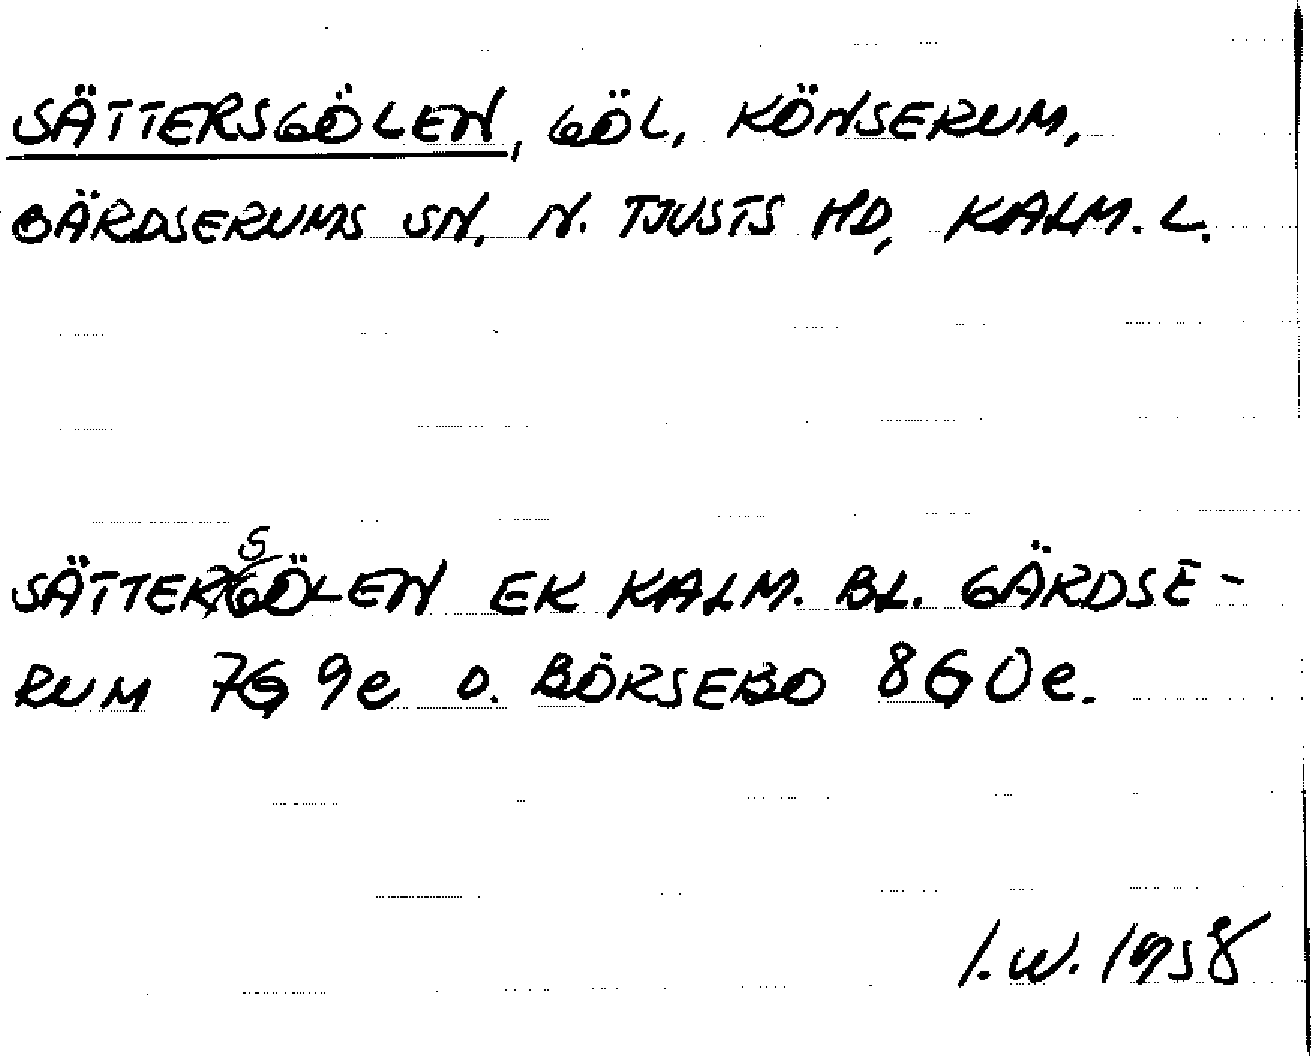 SÄTTERSGÖLEN, GÖL, KÖNSERUM,
GÄRDSERUMS SN, N. TJUSTS HD, KALM. L.
SÄTTERSGÖLEN EK KALM. BL. GÄRDSE-
RUM 7G 9e O. BÖRSEBO 8G0e.
I.W. 1958